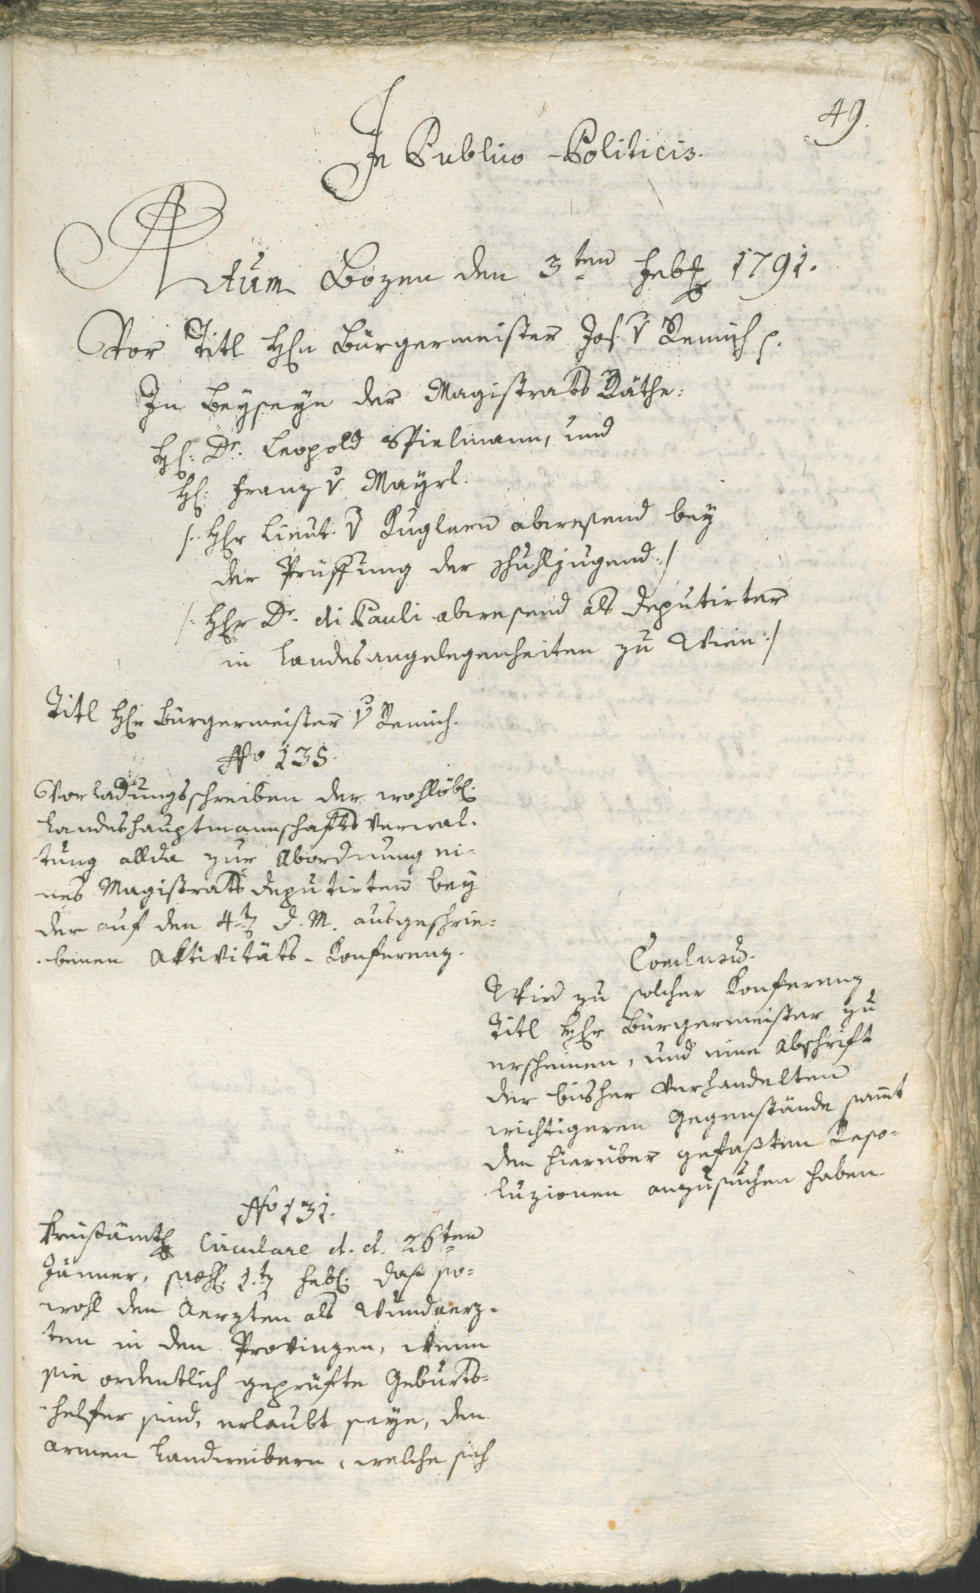 49.
In Publico-Politicis.
Actum Bozen den 3ten Feb. 1791.
Vor Titl Hhn Bürgermeister Jos. v Remich p.
In Beyseyn der Magistrats Räthe:
H: Dr. Leopold Spielmann, und
H: Franz v Mayrl.
/: Hhr Lieut. v Kuglern abwesend bey
der Prüffung der Schuhljugend :/
/: Hhr Dr. di Pauli abwesend als deputirter
in Landesangelegenheiten zu Wien :/
Titl Hhr Bürgermeister v Remich.
No 135.
Vorladungsschreiben der wohllöbl:
Landeshauptmannschafts Verwal-
tung allda zur Abordnung ei-
nes Magistrats deputirten bey
der auf den 4t d. M. ausgeschrie-
benen Aktivitäts-Konferenz.
Conclusum.
Wird zu solcher Konferenz
Titl Hhr Bürgermeister zu
erscheinen, und eine Abschrift
der bisher verhandelten
wichtigeren Gegenstände sammt
den hierüber gefaßten Reso-
luzionen anzusuchen haben
No 131.
Kreisämtl Circulare d. d. 26ten
Jänner, 1.t Feb: daß so-
wohl den Aerzten als Wundaerz-
ten in den Provinzen, wenn
sie ordentlich geprüfte Geburts-
helfer sind, erlaubt seye, den
armen Landweibern, welche sich